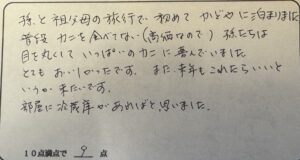 孫と祖父母の旅行で初めてかどやに泊まりました
普段カニを食べてない(高価なので)孫たちは
目を丸くしていっぱいのカニに喜んでいました
とてもおいしかったです。また来年もこれたらいいと
いうか来たいです。
部屋に冷蔵庫があればと思いました。
10点満点で 9 点